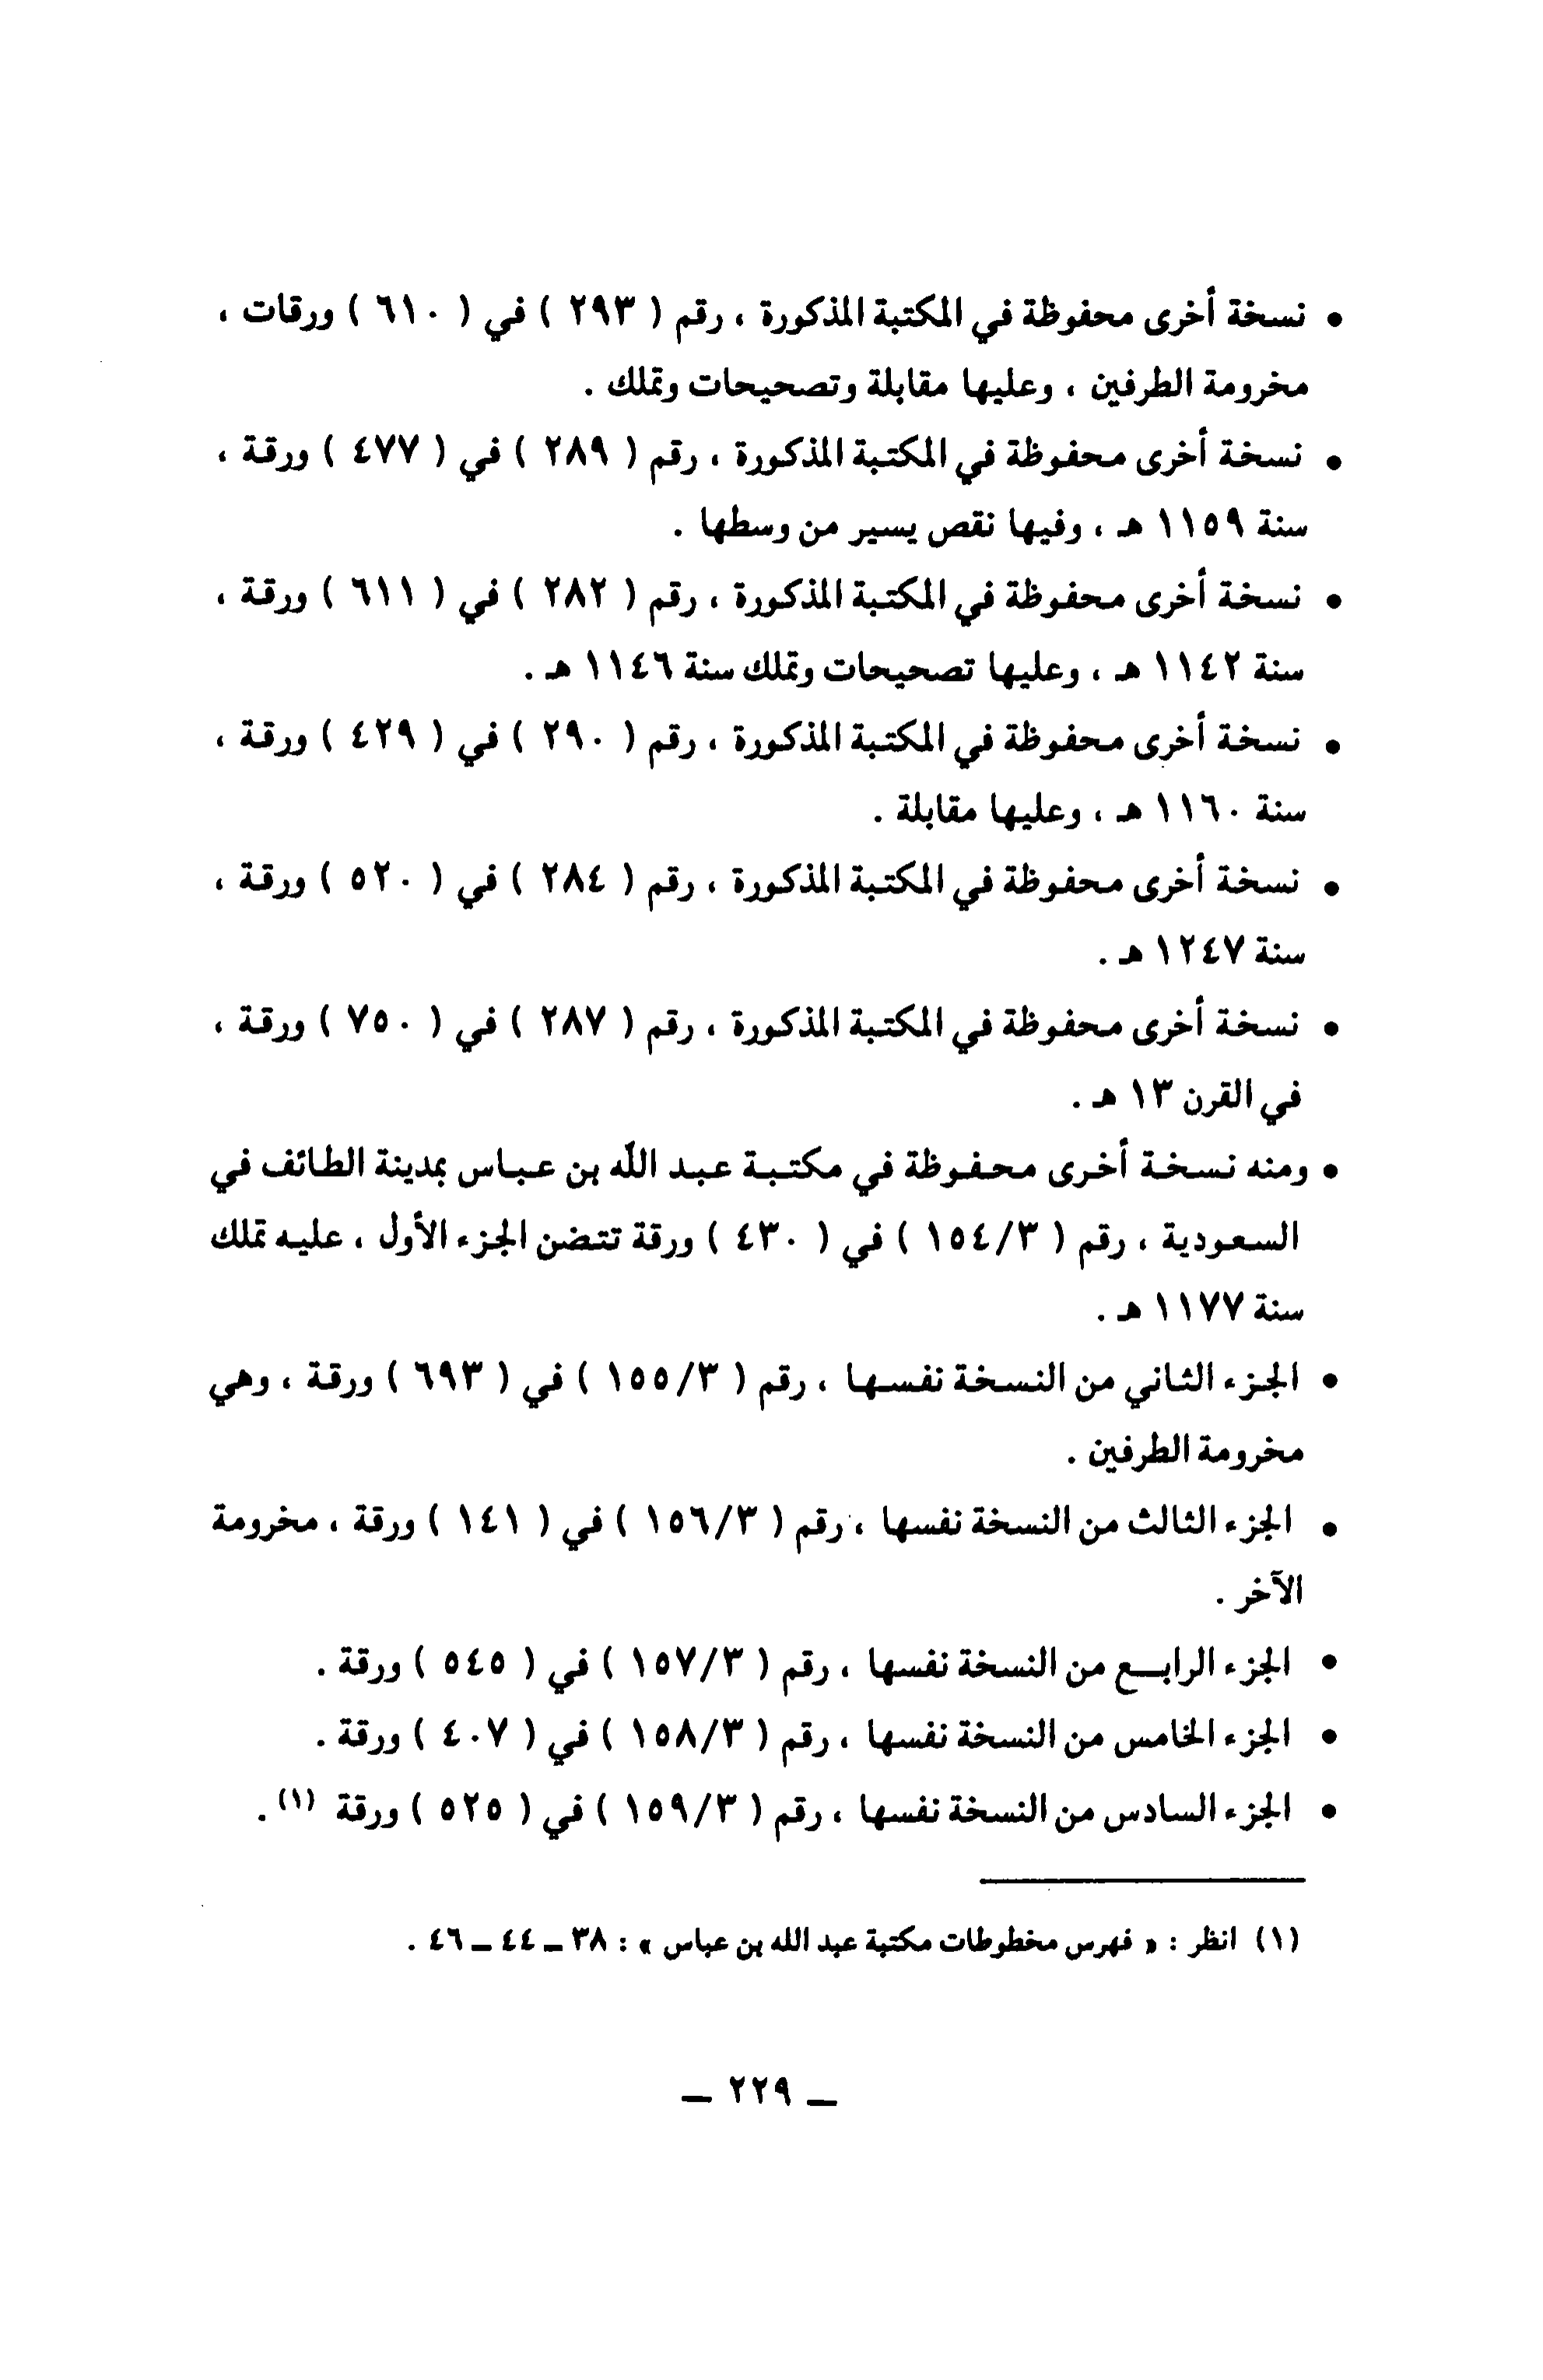 • نسخة أخرى محفوظة في المكتبة المذكورة ، رقم ( ٢٩٣ ) في ( ٦١٠ ) ورقات ،
مخرومة الطرفين ، وعليها مقابلة وتصحيحات وتملك .
• نسخة أخرى محفوظة في المكتبة المذكورة ، رقم ( ٢٨٩ ) في ( ٤٧٧ ) ورقة ،
سنة ١١٥٩ هـ ، وفيها نقص يسير من وسطها .
• نسخة أخرى محفوظة في المكتبة المذكورة ، رقم ( ٢٨٢ ) في ( ٦١١ ) ورقة ،
سنة ١١٤٢ هـ ، وعليها تصحيحات وتملك سنة ١١٤٦ هـ .
• نسخة أخرى محفوظة في المكتبة المذكورة ، رقم ( ٢٩٠ ) في ( ٤٢٩ ) ورقة ،
سنة ١١٦٠ هـ ، وعليها مقابلة .
• نسخة أخرى محفوظة في المكتبة المذكورة ، رقم ( ٢٨٤ ) في ( ٥٢٠ ) ورقة ،
سنة ١٢٤٧ هـ .
• نسخة أخرى محفوظة في المكتبة المذكورة ، رقم ( ٢٨٧ ) في ( ٧٥٠ ) ورقة ،
في القرن ١٣ هـ .
• ومنه نسخة أخرى محفوظة في مكتبة عبد اللّه بن عباس بمدينة الطائف في
السعودية ، رقم ( ١٥٤/٣ ) في ( ٤٣٠ ) ورقة تتضن الجزء الأول ، عليه تملك
سنة ١١٧٧ هـ .
• الجزء الثاني من النسخة نفسها ، رقم ( ١٥٥/٣ ) في ( ٦٩٣ ) ورقة ، وهي
مخرومة الطرفين .
• الجزء الثالث من النسخة نفسها ، رقم ( ١٥٦/٣ ) في ( ١٤١ ) ورقة ، مخرومة
الآخر .
• الجزء الرابع من النسخة نفسها ، رقم ( ١٥٧/٣ ) في ( ٥٤٥ ) ورقة .
• الجزء الخامس من النسخة نفسها ، رقم ( ١٥٨/٣ ) في ( ٤٠٧ ) ورقة .
• الجزء السادس من النسخة نفسها ، رقم ( ١٥٩/٣ ) في ( ٥٢٥ ) ورقة (١) .
(١) انظر : « فهرس مخطوطات مكتبة عبد الله بن عباس » : ٣٨ ـ ٤٤ ـ ٤٦ .
ـ ٢٢٩ ـ